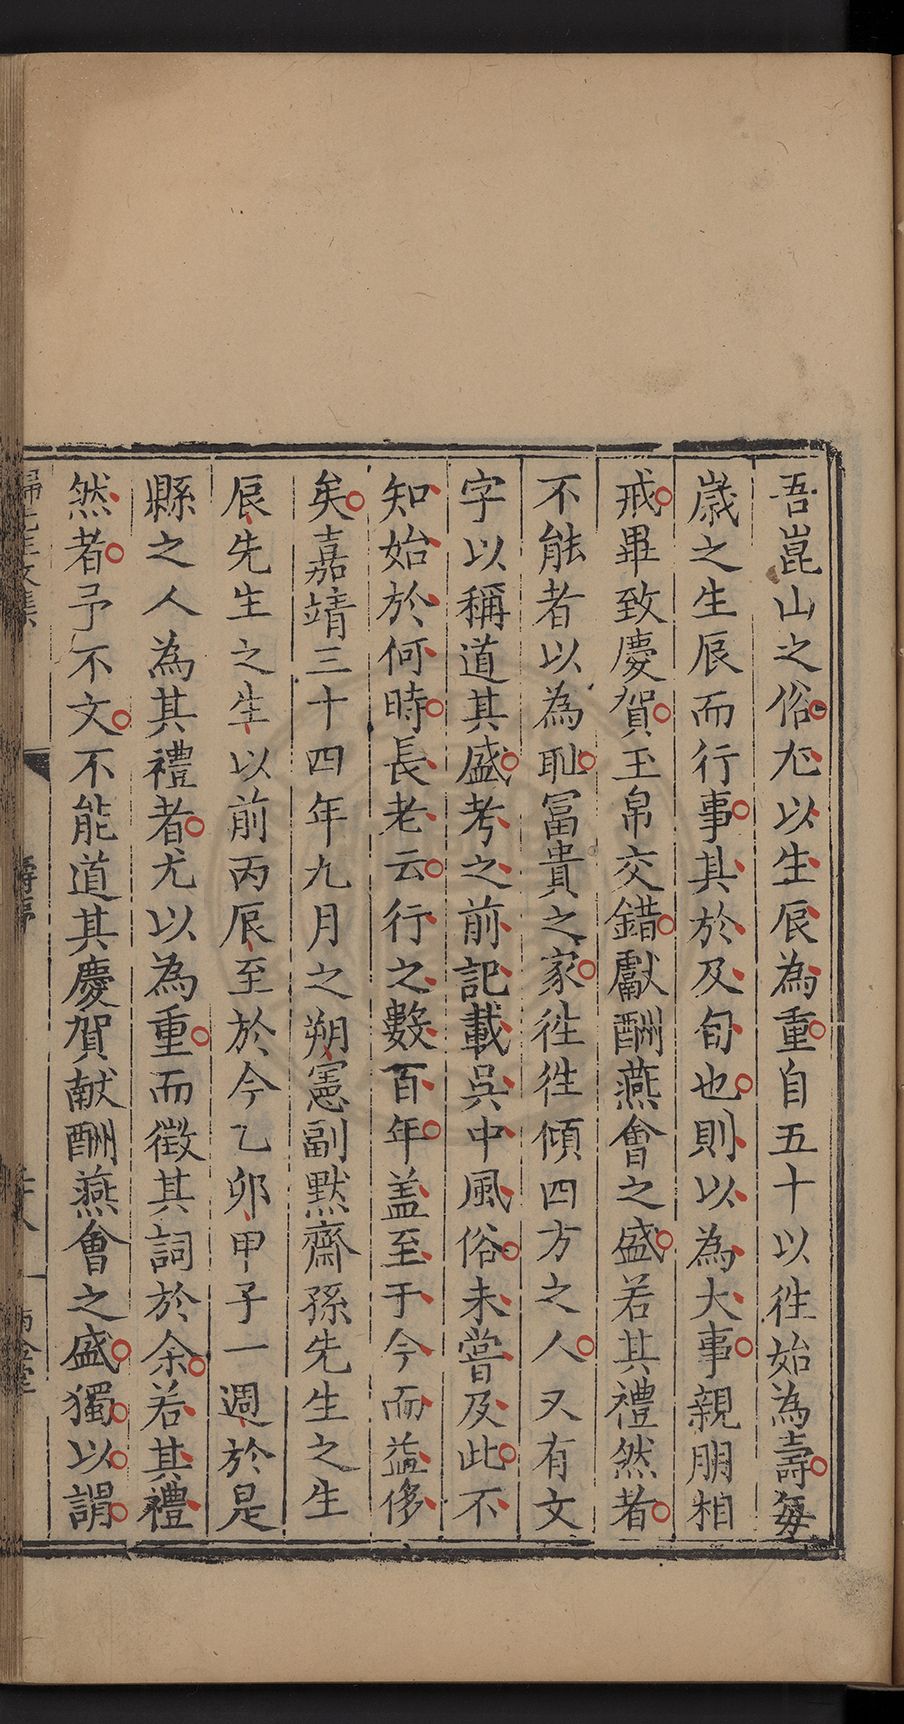 吾崑山之俗尤以生辰為重自五十以徃始為壽每
歲之生辰而行事其於及旬也則以為大事親朋相
戒畢致慶賀玉帛交錯獻酬燕會之盛若其禮然者
不能者以為耻富貴之家徃徃傾四方之人又有文
字以稱道其盛考之前記載吳中風俗未嘗及此不
知始於何時長老云行之數百年盖至于今而益侈
矣嘉靖三十四年九月之朔憲副默齋孫先生之生
辰先生之生以前丙辰至於今乙卯甲子一週於是
縣之人為其禮者尤以為重而徵其詞於余若其禮
然者予不文不能道其慶賀献酬燕會之盛獨以謂
歸先生文集
壽序